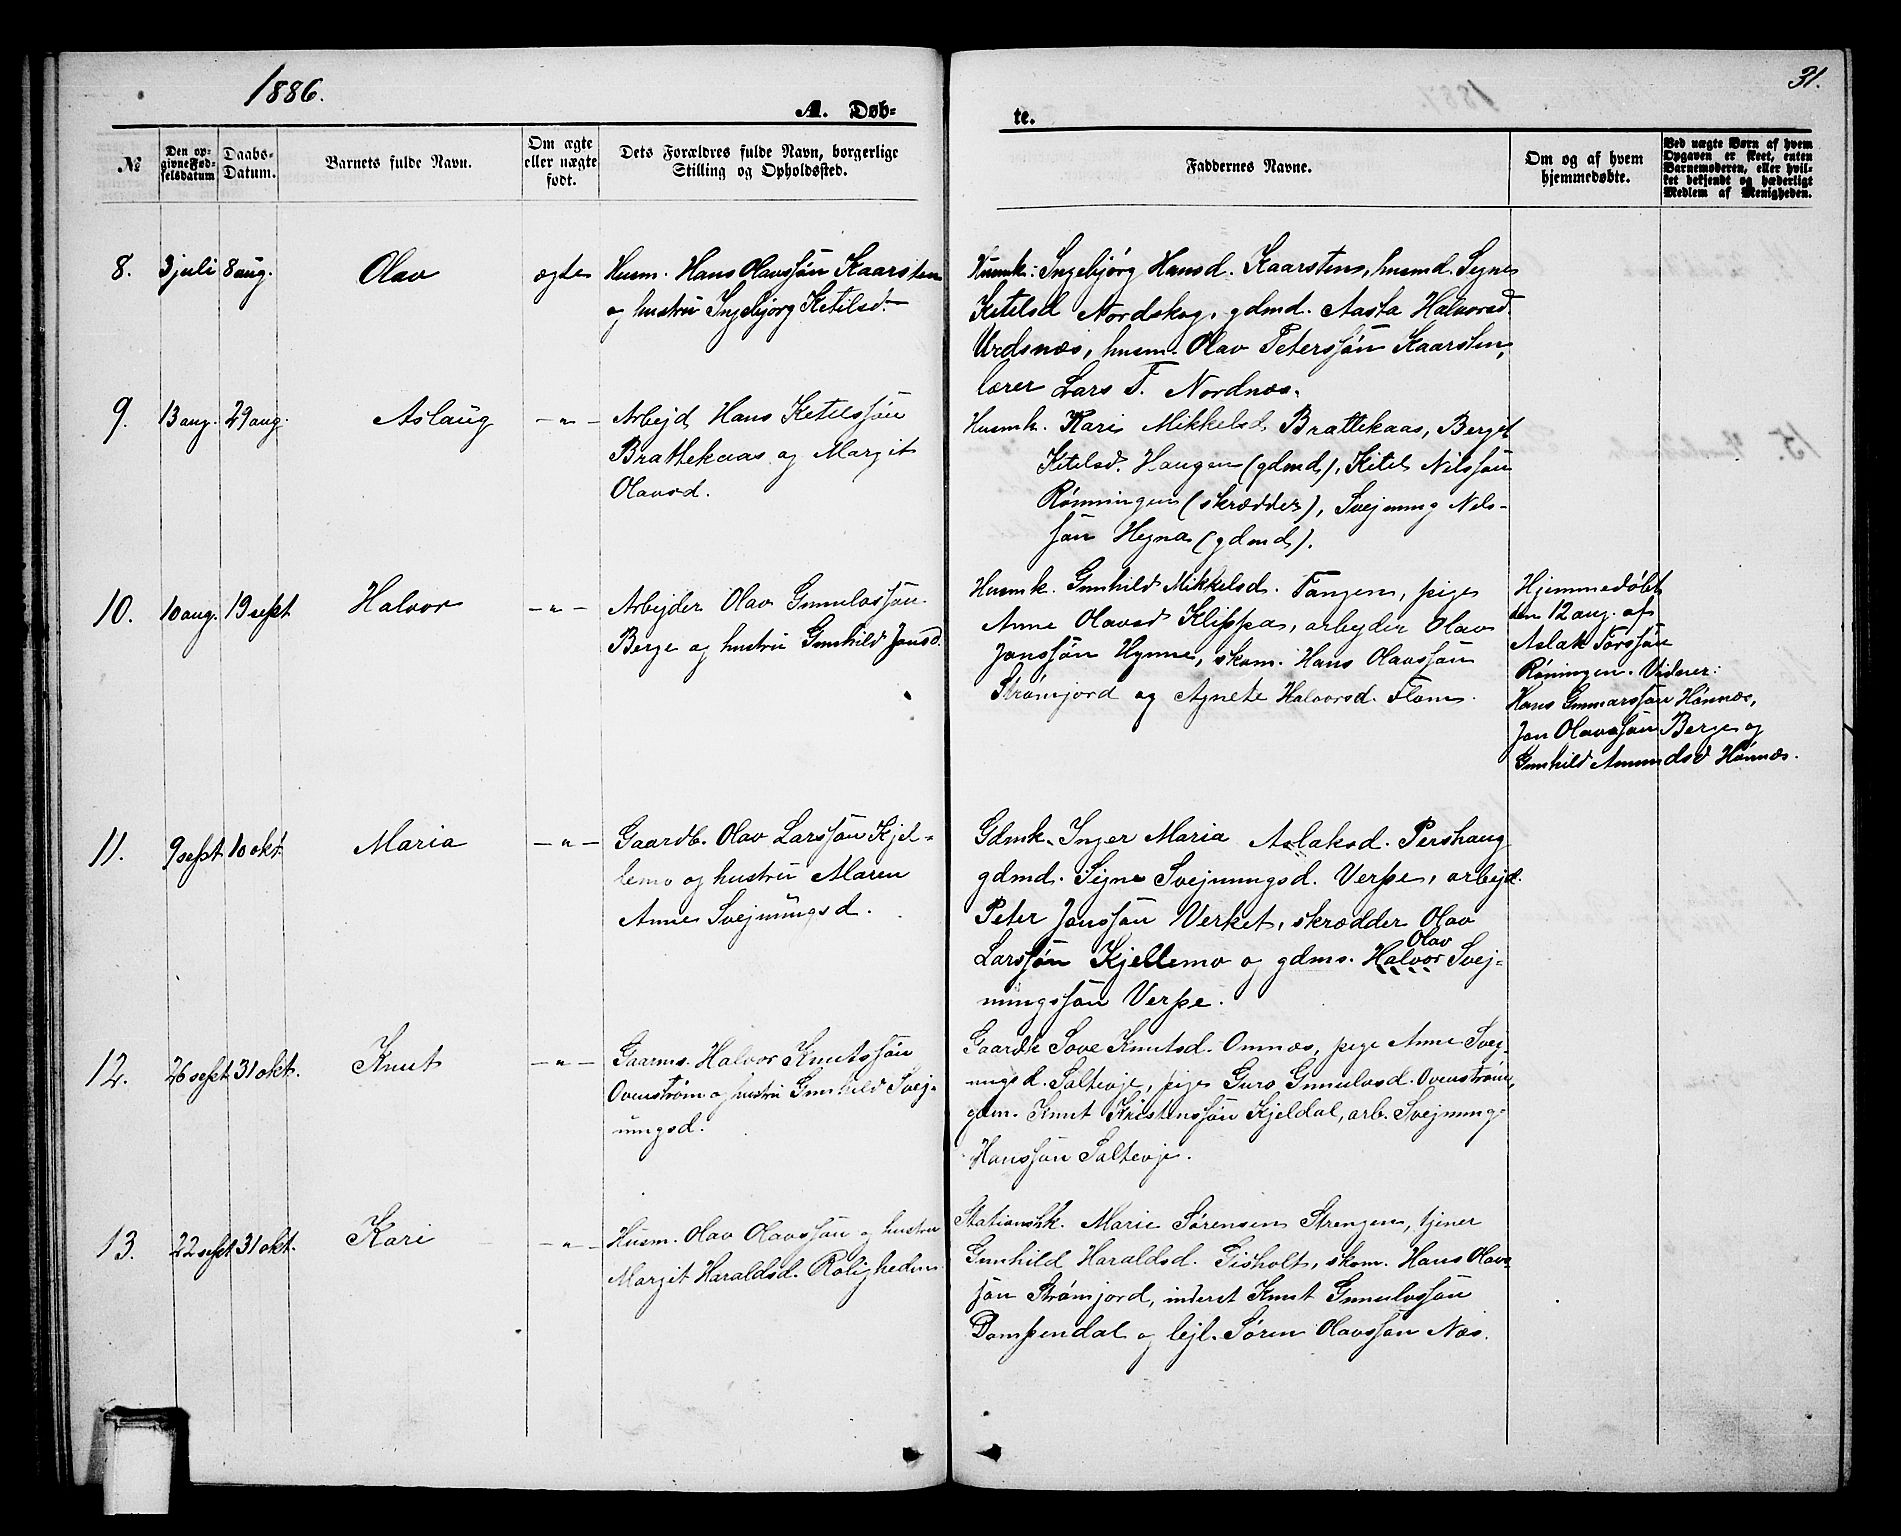 1886.
31.
A. Døb-
te.
№
Den op-
givne Fød-
selsdatum
Daabs-
Datum.
Barnets fulde Navn.
Om ægte
eller uægte
født.
Dets Forældres fulde Navn, borgerlige
Stilling og Opholdssted.
Faddernes Navne.
Om og af hvem
hjemmedøbte.
Ved uægte Børn af hvem
Opgaven er skeet, enten
Barnemoderen, eller hvil-
ket bekjendt og hæderligt
Medlem af Menigheden.
8. 3 juli 8 aug. Olav ægte
Husm. Hans Olavssøn Kaarsten
og hustru Ingebjørg Ketilsd.
Husmk: Ingebjørg Hansd. Kaarsten, husmd. Signe
Ketelsd Nordskog, gdmd. Aasta Halvorsd
Urdsnæs, husm. Olav Peterssøn Kaarsten,
lærer Lars T. Nordnæs.
9. 13 aug. 29 aug. Aslaug -"-
Arbejd Hans Ketelssøn
Brattekaas og Margit
Olavsd.
Husmk. Kari Mikkelsd Brattekaas, Berget
Ketelsd. Haugen (gdmd), Ketel Nilssøn
Rønningen (skrædder), Svejnung Nels-
søn Hegna (gdmd).
10. 10 aug. 19 sept Halvor -"-
Arbejder Olav Gunulvssøn
Berge og hustru Gunhild Jonsd.
Husmk. Gunhild Mikkelsd. Tangen, pige
Anne Olavsd Klippa, arbejder Olav
Jonssøn Hynne, skom. Hans Olavssøn
Strømjord og Agnete Halvorsd. Flom.
Hjemmedøbt
den 12 aug. af
Aslak Torssøn
Røningen. Vidner:
Hans Gunnarssøn Hønnæs,
Jon Olavssøn Berge og
Gunhild Amundsd Hønnæs.
11. 9 sept 10 okt. Maria -"-
Gaardb. Olav Larssøn Kjel-
lemo og hustru Maren
Anne Svejnungsd.
Gdmk. Inger Maria Aslaksd. Pershaug
gdmd. Signe Svejnungsd. Verpe, arbejd.
Peter Jonssøn Verket, skrædder Olav
Larssøn Kjellemo og gdms. Halvor Svej-
Olav
nungssøn Verpe.
12. 26 sept 31 okt. Knut -"-
Gaarms. Halvor Knutssøn
Ovenstrøm og hustru Gunhild Svej-
nungsd.
Gaardk Tove Knutsd. Omnæs, pige Anne Svej-
nungsd. Saltevje, pige Guro Gunulvsd. Ovenstrøm,
gdm. Knut Kristenssøn Kjeldal, arb. Svejnung
Hanssøn Saltevje.
13. 22 sept 31 okt. Kari -"-
Husm. Olav Olavssøn og hustru
Margit Haraldsd. Roligheden
Stationshk. Marie Sørensen Strengen, tjener
Gunhild Haraldsd. Gisholt, skom. Hans Olav-
søn Strømjord, inderst Knut Gunulvssøn
Dompendal og lejl. Søren Olavssøn Næs.